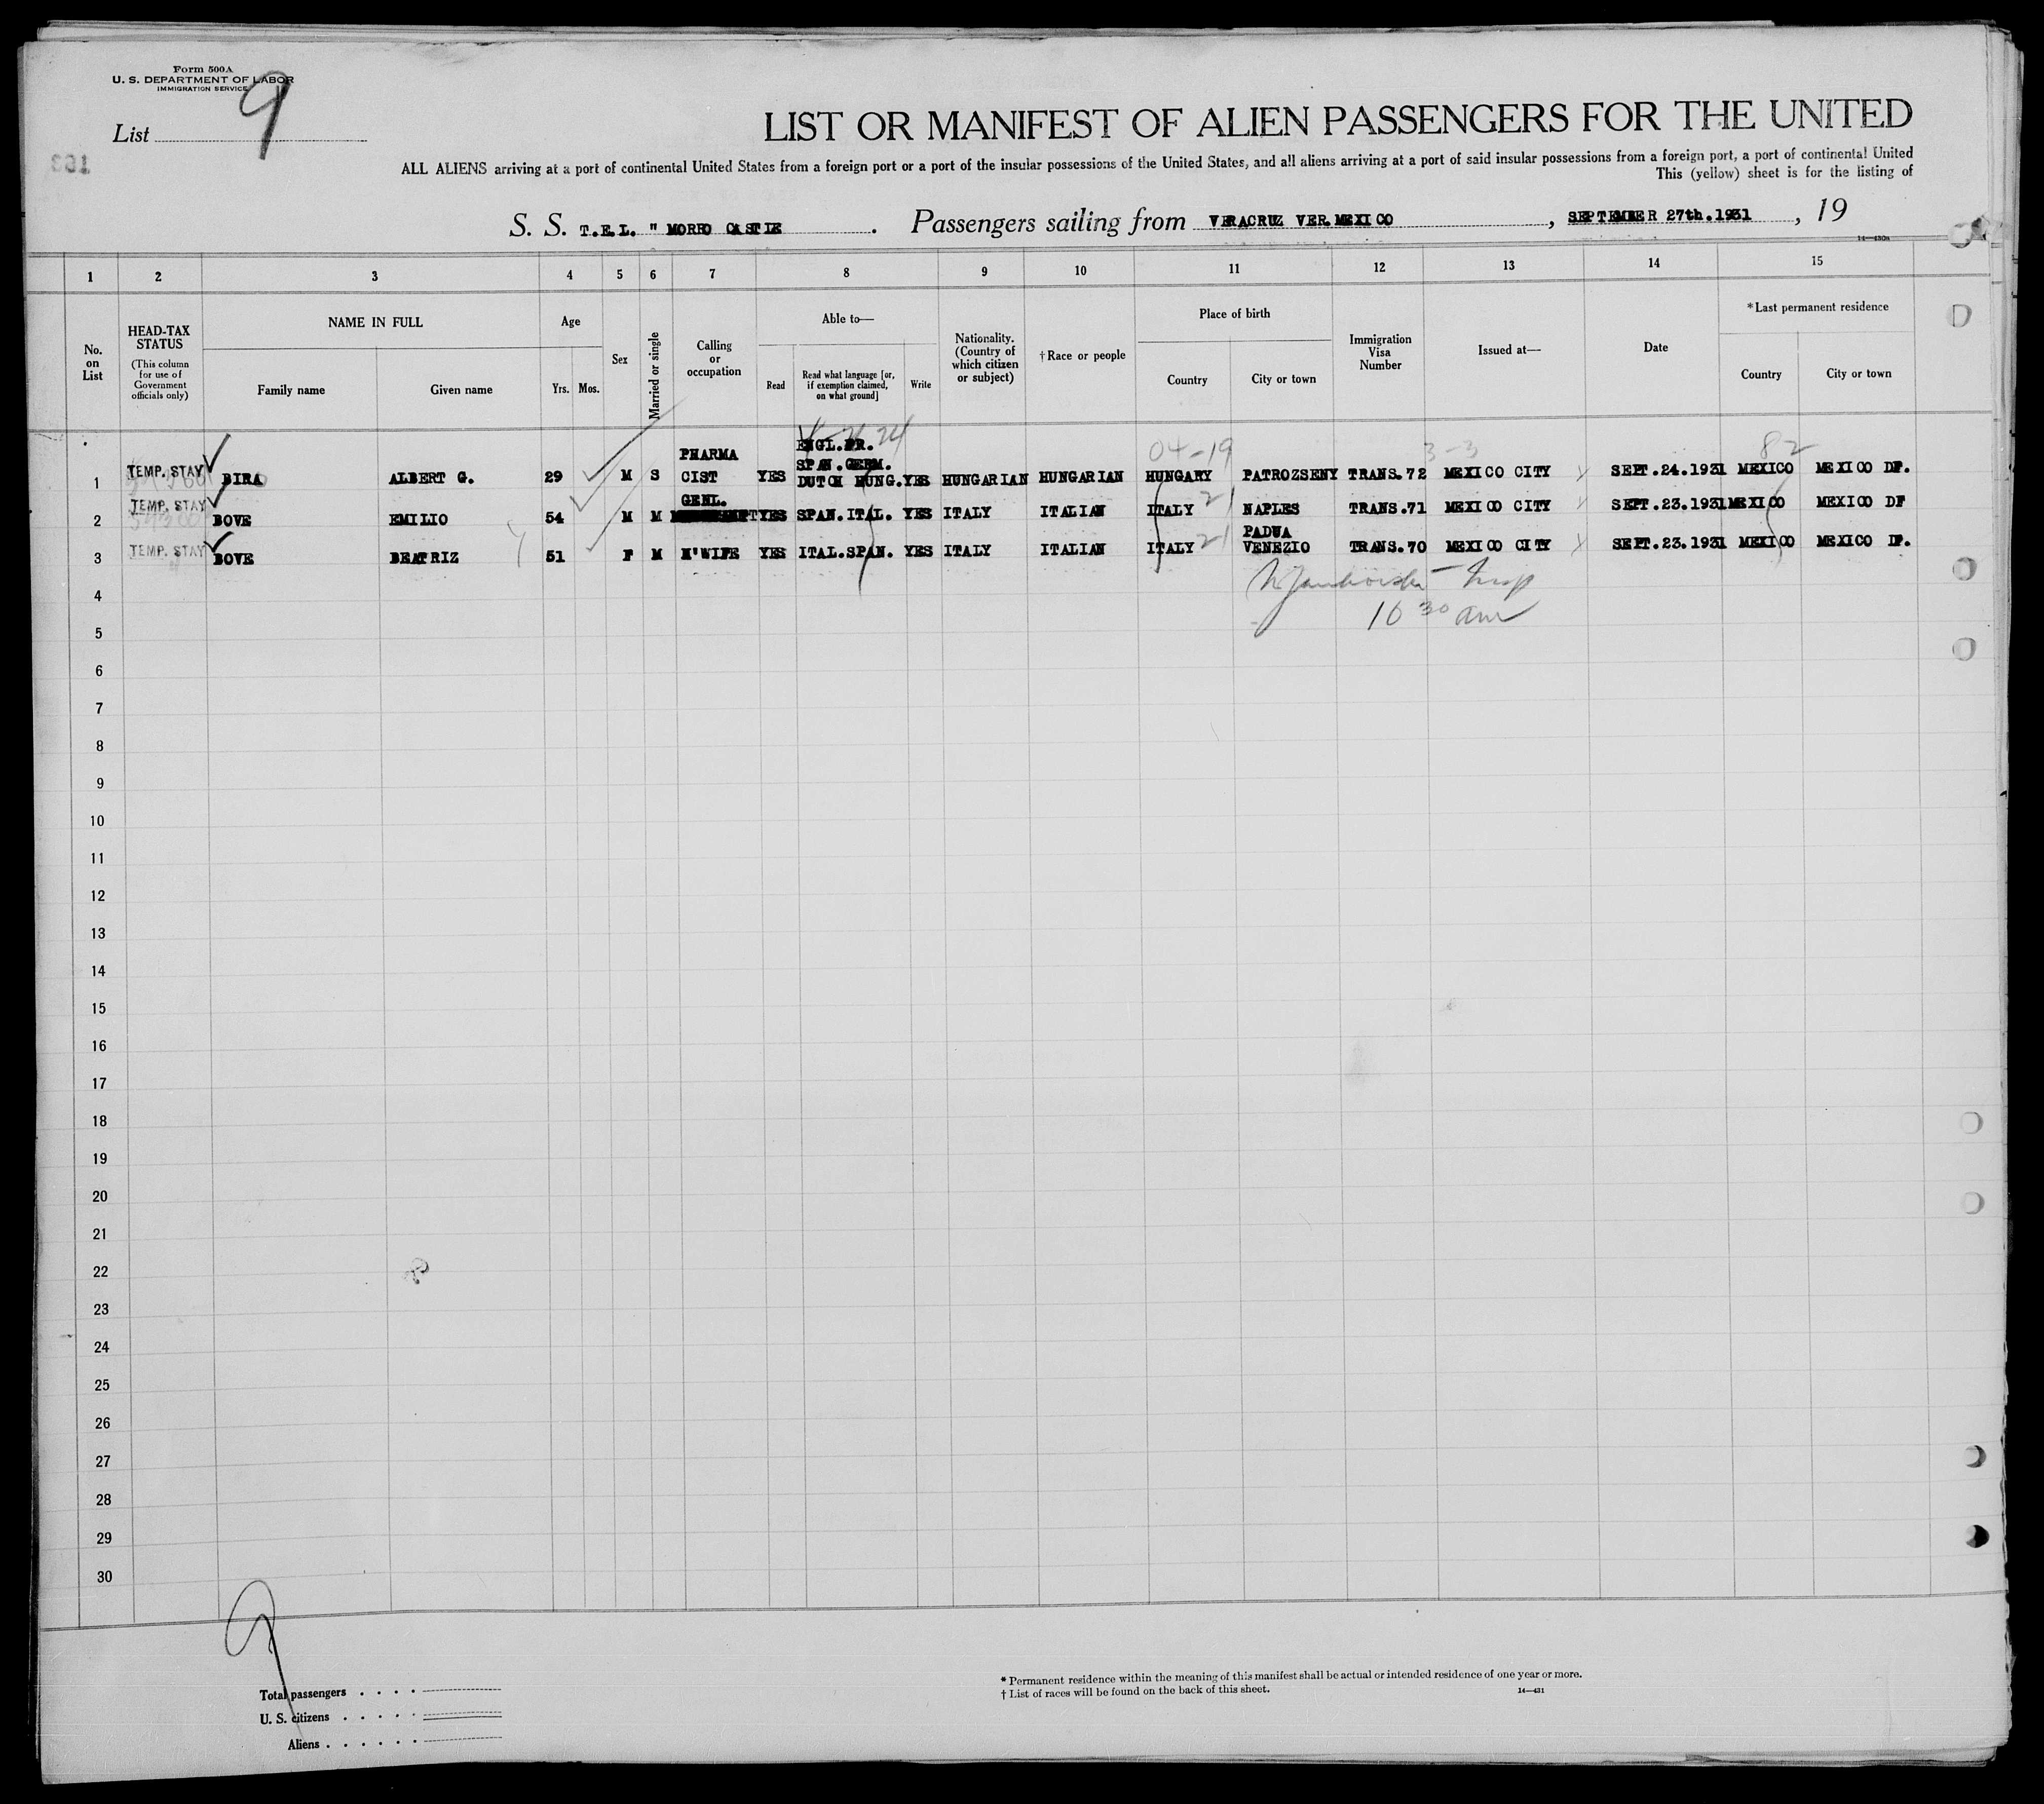 Form 500A
U. S. DEPARTMENT OF LABOR
IMMIGRATION SERVICE
List 9
LIST OR MANIFEST OF ALIEN PASSENGERS FOR THE UNITED
ALL ALIENS arriving at a port of continental United States from a foreign port or a port of the insular possessions of the United States, and all aliens arriving at a port of said insular possessions from a foreign port, a port of continental United
This (yellow) sheet is for the listing of
S. S. T.E.L. " MORRO CASTLE . Passengers sailing from VERACRUZ VER.MEXICO , SEPTEMBER 27th.1931 , 19
14—430a
1 2 3 4 5 6 7 8 9 10 11 12 13 14 15
No. on List
HEAD-TAX STATUS
(This column for use of Government officials only)
NAME IN FULL
Family name Given name
Age
Yrs. Mos.
Sex
Married or single
Calling or occupation
Able to—
Read
Read what language [or, if exemption claimed, on what ground]
Write
Nationality. (Country of which citizen or subject)
†Race or people
Place of birth
Country City or town
Immigration Visa Number
Issued at—
Date
*Last permanent residence
Country City or town
04-19 3-3 82
1 TEMP. STAY BIRA ALBERT G. 29 M S PHARMA CIST YES ENGL.FR. SPAN.GERM. DUTCH HUNG. YES HUNGARIAN HUNGARIAN HUNGARY PATROZSENY TRANS.72 MEXICO CITY SEPT.24.1931 MEXICO MEXICO DF.
2 TEMP. STAY BOVE EMILIO 54 M M GENL. YES SPAN.ITAL. YES ITALY ITALIAN ITALY 21 NAPLES TRANS.71 MEXICO CITY SEPT.23.1931 MEXICO MEXICO DF
3 TEMP. STAY BOVE BEATRIZ 51 F M H'WIFE YES ITAL.SPAN. YES ITALY ITALIAN ITALY 21 PADUA VENEZIO TRANS.70 MEXICO CITY SEPT.23.1931 MEXICO MEXICO DF.
4
Insp
5
10 30 am
6
7
8
9
10
11
12
13
14
15
16
17
18
19
20
21
22
23
24
25
26
27
28
29
30
9
Total passengers . . . .
U. S. citizens . . . . .
Aliens . . . . . .
* Permanent residence within the meaning of this manifest shall be actual or intended residence of one year or more.
† List of races will be found on the back of this sheet.
14—431